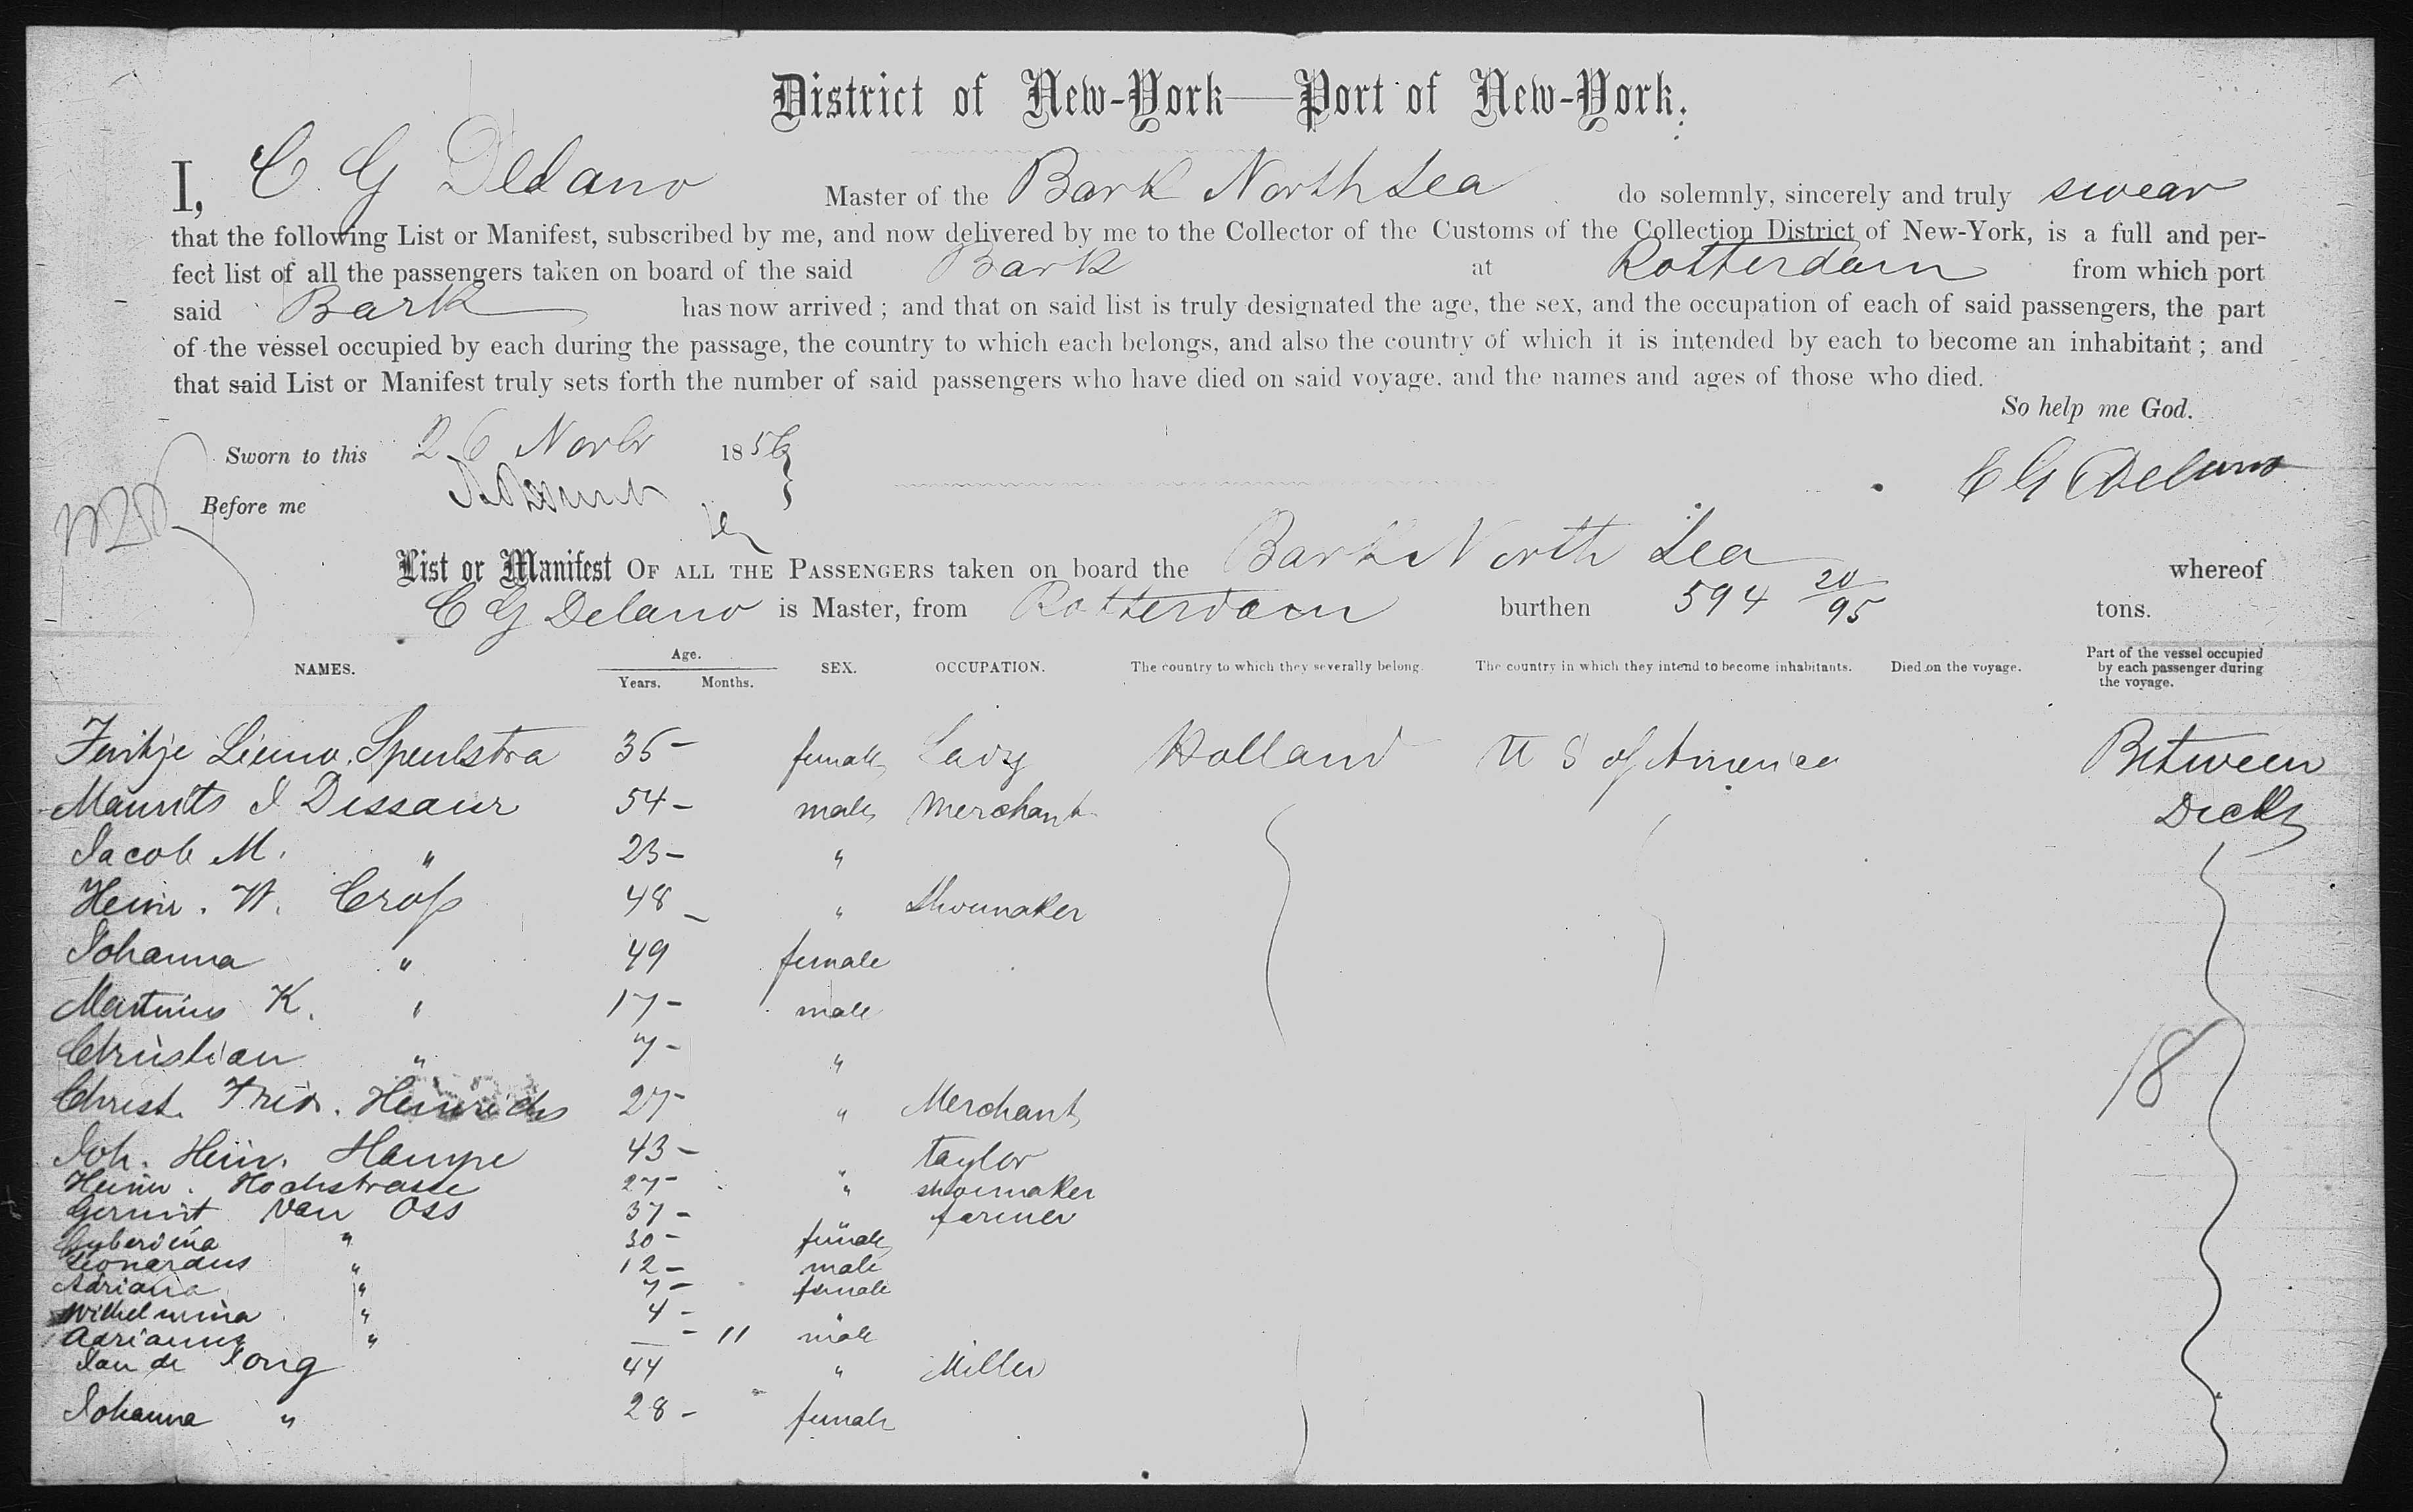 District of New-York—Port of New-York.
I, C. G Delano Master of the Bark North Sea do solemnly, sincerely and truly swear
that the following List or Manifest, subscribed by me, and now delivered by me to the Collector of the Customs of the Collection District of New-York, is a full and per-
fect list of all the passengers taken on board of the said Bark at Rotterdam from which port
said Bark has now arrived ; and that on said list is truly designated the age, the sex, and the occupation of each of said passengers, the part
of the vessel occupied by each during the passage, the country to which each belongs, and also the country of which it is intended by each to become an inhabitant ; and
that said List or Manifest truly sets forth the number of said passengers who have died on said voyage, and the names and ages of those who died.
So help me God.
Sworn to this 26 Novbr 1856
C G Delano
Before me
List or Manifest OF ALL THE PASSENGERS taken on board the Bark North Sea whereof
C G Delano is Master, from Rotterdam burthen 594 20/95 tons.
NAMES. Age. Years. Months. SEX. OCCUPATION. The country to which they severally belong. The country in which they intend to become inhabitants. Died on the voyage. Part of the vessel occupied by each passenger during the voyage.
Speulstra 35 - female Lady Holland U S of America Between
Maurits I Dessaur 54 - male Merchant Decks
Jacob M. " 23 - "
Heinr. W. Croß 48 - " Shoemaker
Johanna " 49 female
Martinus K. " 17 - male
Christian " 7 - "
18
Christ. Fried. Heinrichs 27 - " Merchant
Joh. Heinr. Hampe 43 - " taylor
Heinr. Hochstrasse 27 - " shoemaker
Gerrit van Oss 37 - farmer
Gyberdina " 30 - female
Leonardus " 12 - male
Adriana " 7 - female
Wilhelmina " 4 - "
Adrianus " - 11 male
Jan de Jong 44 " Miller
Johanna " 28 - female